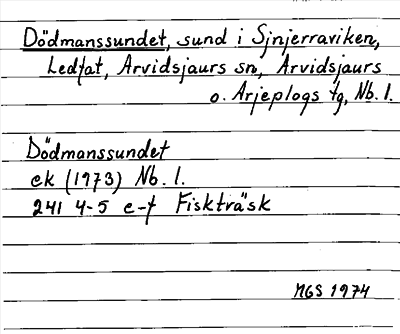 Dödmanssundet, sund i Sjnjerraviken,
Ledfat, Arvidsjaurs sn, Arvidsjaurs
o. Arjeplogs tg, Nb. l.
Dödmanssundet
ek (1973) Nb. l.
241 4-5 e-f Fiskträsk
MGS 1974